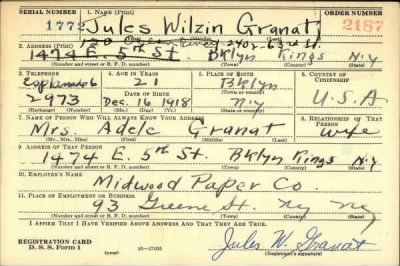 SERIAL NUMBER 1. NAME (Print) ORDER NUMBER
1772 Jules Wilzin Granat 2187
(First) (Middle) (Last)
2402-63rd St.
2. ADDRESS (Print)
1474 E. 5th St. Bklyn Kings N.Y
(Number and street or R. F. D. number) (Town) (County) (State)
3. TELEPHONE 4. AGE IN YEARS 5. PLACE OF BIRTH 6. COUNTRY OF CITIZENSHIP
Esplanade 6 21 Bklyn
DATE OF BIRTH (Town or county)
2973 Dec. 16 1918 N.Y U.S.A
(Exchange) (Number) (Mo.) (Day) (Yr.) (State or country)
7. NAME OF PERSON WHO WILL ALWAYS KNOW YOUR ADDRESS 8. RELATIONSHIP OF THAT PERSON
Mrs. Adele Granat wife
(Mr., Mrs., Miss) (First) (Middle) (Last)
9. ADDRESS OF THAT PERSON
1474 E. 5th St. Bklyn Kings N.Y
(Number and street or R. F. D. number) (Town) (County) (State)
10. EMPLOYER'S NAME
Midwood Paper Co.
11. PLACE OF EMPLOYMENT OR BUSINESS
93 Greene St. Ny Ny
(Number and street or R. F. D. number) (Town) (County) (State)
I AFFIRM THAT I HAVE VERIFIED ABOVE ANSWERS AND THAT THEY ARE TRUE.
REGISTRATION CARD
D. S. S. Form 1 (over) 16-17105 Jules W. Granat
(Registrant's signature)